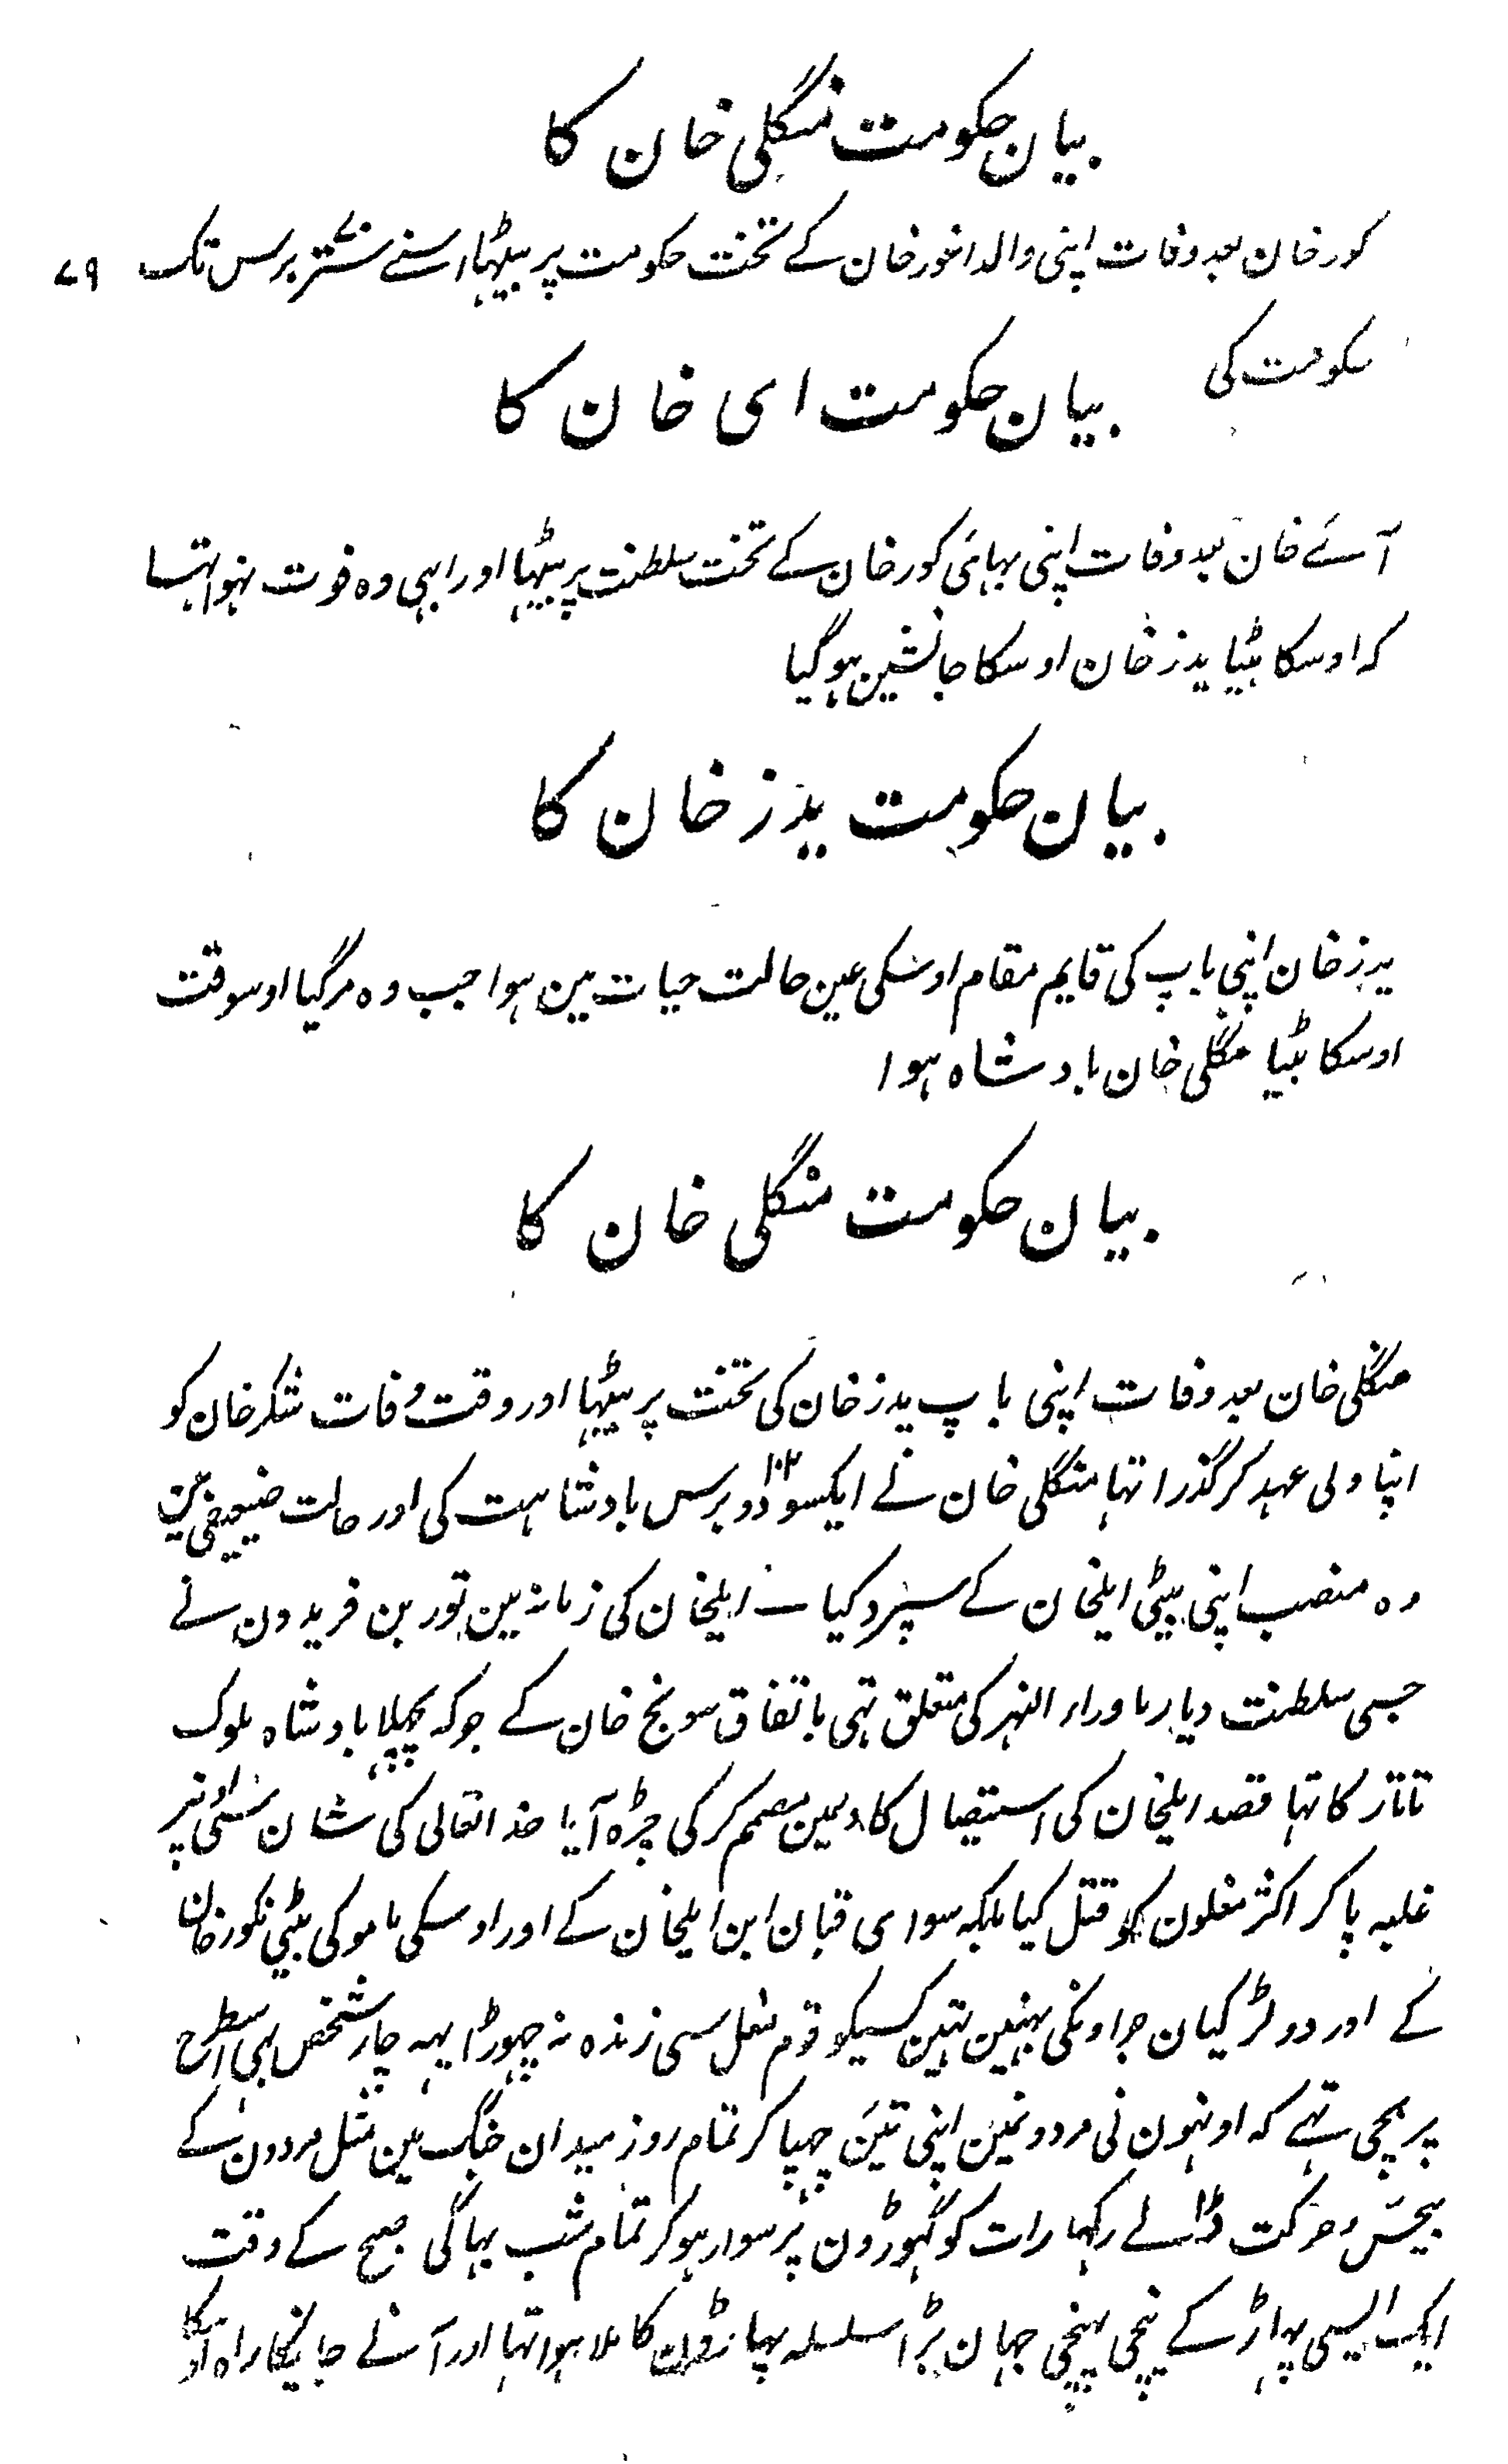 بیان حکومت منگلی خان کا
کورخان بعد وفات اپنی والد اغورخان کے تخت حکومت پر بیٹھا اسنے ستتر برس تک ۷۹
حکومت کی
بیان حکومت ای خان کا
آئے خان بعد وفات اپنی بہائی کورخان کے تخت سلطنت پر بیٹہا اور ابہی وہ فوت نہوا تہا
کہ اوسکا بیٹا یدزخان اوسکا جانشین ہوگیا
بیان حکومت یدز خان کا
یدزخان اپنی باپ کی قایم مقام اوسکی عین حالت حیات مین ہوا جب وہ مرگیا اوسوقت
اوسکا بیٹا منگلی خان بادشاہ ہوا
بیان حکومت منگلی خان کا
منگلی خان بعد وفات اپنی باپ یدزخان کی تخت پر بیٹہا اور وقت وفات شکرخان کو
اپنا ولی عہد کر گذرا تہا منگلی خان نے ایکسو دو ۱۰۲ برس بادشاہت کی اور حالت ضعیفی مین
وہ منصب اپنی بیٹی ایلخان کے سپرد کیا ایلخان کی زمانہ مین تور بن فریدون نے
جسی سلطنت دیار ماوراء النہر کی متعلق تہی باتفاق سونج خان کے جو کہ پچھلا بادشاہ ملوک
تاتار کا تہا قصد ایلخان کی استیصال کا دلمین مصمم کر کی چڑہ آیا خدا تعالی کی شان سے اونپر
غلبہ پا کر اکثر مغلون کو قتل کیا بلکہ سوای قیان ابن ایلخان کے اور اوسکی مامو کی بیٹی نکورخان
کے اور دو لڑکیان جو اونکی بہنین تہین کسیکو قوم مغل سی زندہ نہ چہوڑا یہہ چار شخص بہی اسطرح
پر بچی تہے کہ اونہون نی مردونمین اپنی تئین چہپا کر تمام روز میدان جنگ مین مثل مردون کے
بیحس و حرکت ڈالے رکہا رات کو گہوڑون پر سوار ہو کر تمام شب بہاگی صبح کے وقت
ایک ایسی پہاڑ کے نیچی پہنچی جہان بڑا سلسلہ پہاڑون کا ملا ہوا تہا اور آنے جانیکا راہ